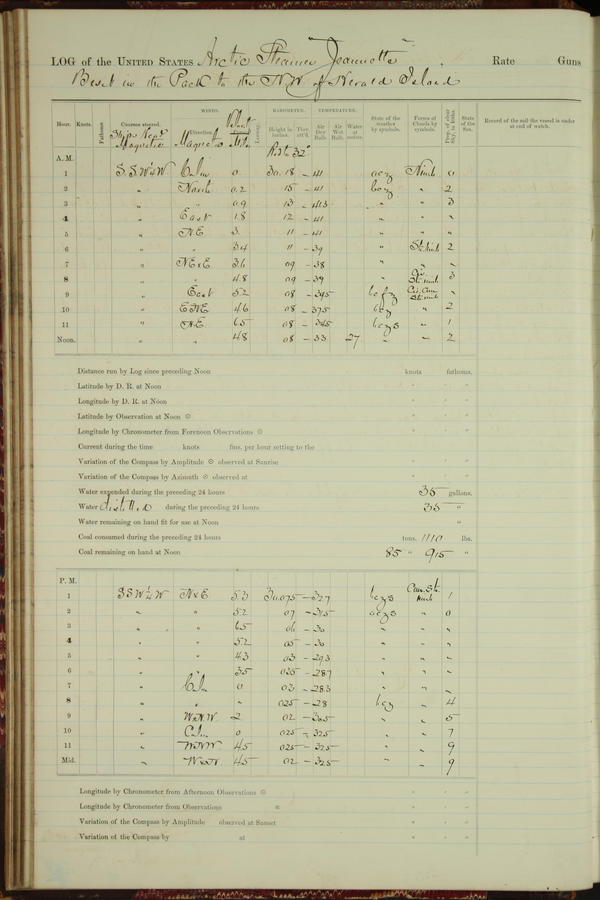 LOG of the UNITED STATES Arctic Steamer Jeannette Rate Guns
Beset in the Pack to the N.W. of Herald Island
Hour. Knots. Fathoms. Courses steered. WINDS. Direction. Leeway. BAROMETER. Height in inches. Ther. att'd. TEMPERATURE. Air Dry Bulb. Air Wet Bulb. Water at surface. State of the weather by symbols. Forms of Clouds by symbols. Prop. of clear Sky, in 10ths. State of the Sea. Record of the sail the vessel is under at end of watch.
Ship's Head Magnetic Magnetic
A. M.
1 S.S.W¼W Calm 0 30.18 - 41 Nimb 0
2 " North 0.2 15 - 41 " 2
3 " " 0.9 13 - 41.3 " " 3
4 " East 1.8 12 - 41 " " "
5 " N.E. 3. 11 - 41 " " "
6 " " 3.4 11 - 39 " St. Nimb 2
7 " NExE 3.6 09 - 38 " " "
8 " " 4.8 09 - 39 " 3
9 " East 5.2 08 - 39.5
10 " ENE 4.6 08 - 37.5 " 2
11 " N.E. 6.5 08 - 34.5 " 1
Noon. " " 4.8 08 - 33 27 " " 2
Distance run by Log since preceding Noon knots fathoms.
Latitude by D. R. at Noon
Longitude by D. R. at Noon
Latitude by Observation at Noon
Longitude by Chronometer from Forenoon Observations
Current during the time knots fms. per hour setting to the
Variation of the Compass by Amplitude observed at Sunrise
Variation of the Compass by Azimuth observed at
Water expended during the preceding 24 hours 35 gallons.
Water distilled during the preceding 24 hours 35 "
Water remaining on hand fit for use at Noon "
Coal consumed during the preceding 24 hours tons. 1110 lbs.
Coal remaining on hand at Noon 85 " 915 "
P. M.
1 S.S.W¼W NxE 5.3 30.075 - 32.7 1
2 " " 5.2 07 - 31.5 " 0
3 " " 6.5 06 - 30 " " "
4 " " 5.2 05 - 30 " " "
5 " " 4.3 03 - 29.3 " " "
6 " " 3.5 025 - 28.7 " " "
7 " Calm 0 03 - 28.3 " " "
8 " " " 025 - 28 " 4
9 " WNW 2 02 - 30.5 " " 5
10 " Calm 0 025 - 32.5 " " 7
11 " WNW 4.5 025 - 32.5 " " 9
Mid. " 4.5 02 - 32.5 " " 9
Longitude by Chronometer from Afternoon Observations
Longitude by Chronometer from Observations
Variation of the Compass by Amplitude observed at Sunset
Variation of the Compass by at